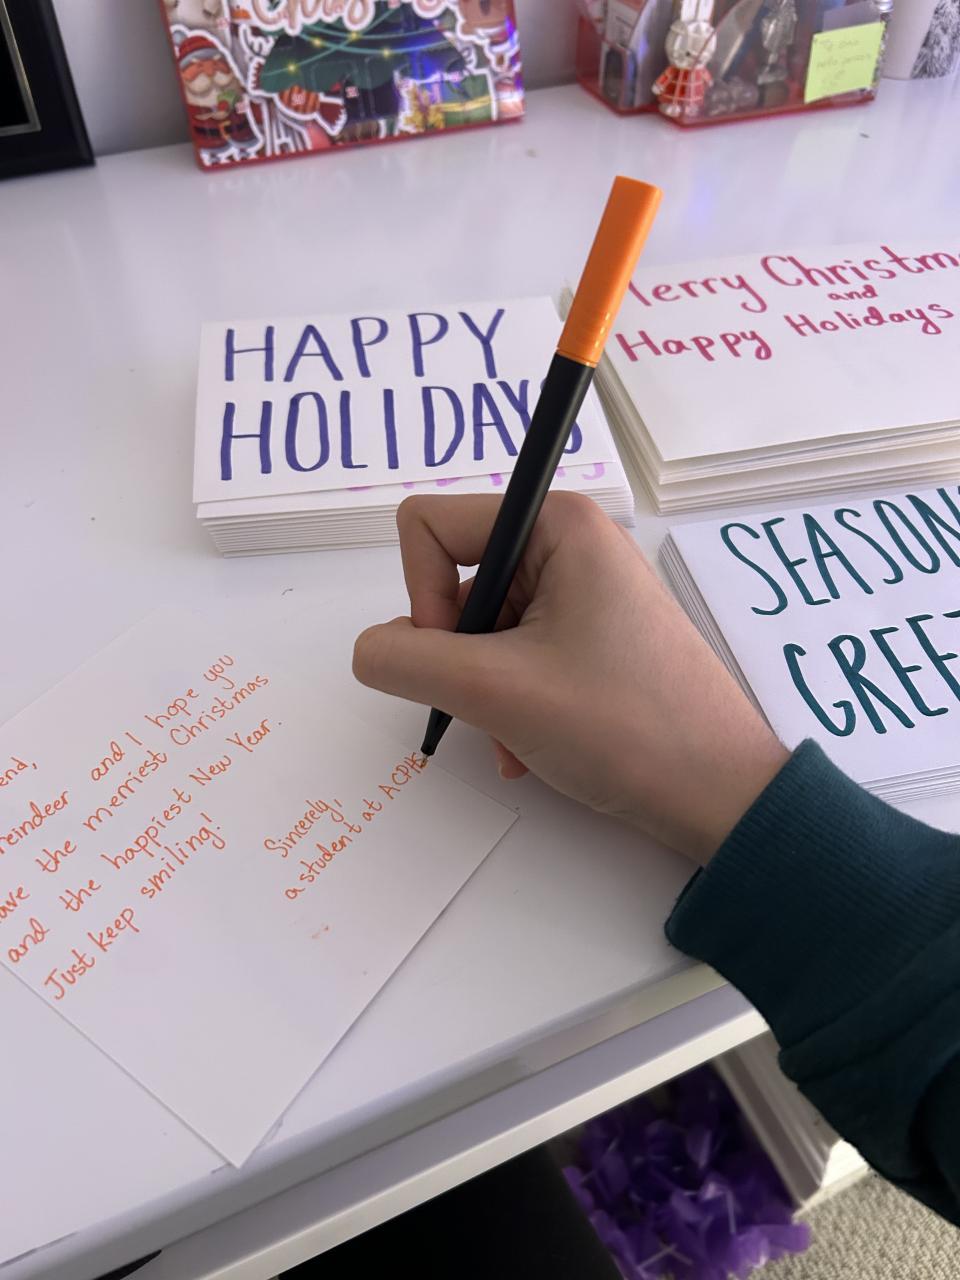 HAPPY
HOLIDAYS
Merry Christm
and
Happy Holidays
SEASON
GREET
end,
reindeer and I hope you
ave the merriest Christmas
and the happiest New Year.
Just keep smiling!
Sincerely,
a student at ACPHS